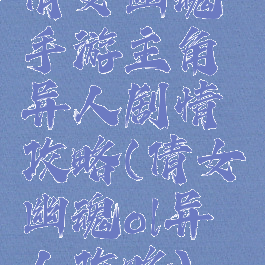 倩女幽魂
手游主角
异人剧情
攻略(倩女
幽魂ol异
人攻略)